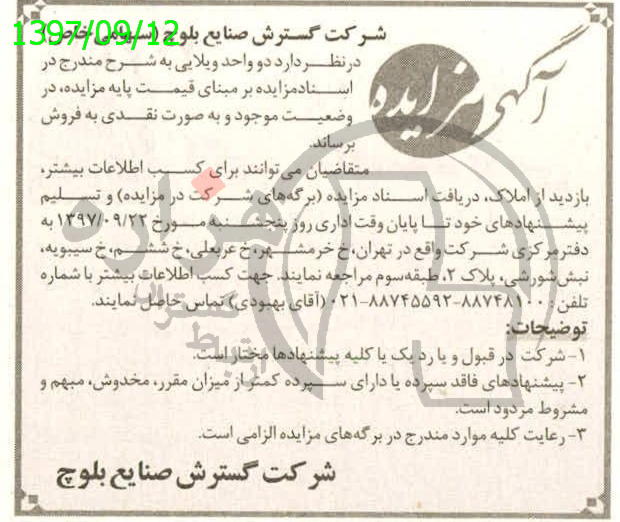 1397/09/12
آگهی مزایده
شرکت گسترش صنایع بلوچ (سهامی خاص)
درنظر دارد دو واحد ویلایی به شرح مندرج در
اسنادمزایده بر مبنای قیمت پایه مزایده، در
وضعیت موجود و به صورت نقدی به فروش
برساند.
متقاضیان می توانند برای کسب اطلاعات بیشتر،
بازدید از املاک، دریافت اسناد مزایده (برگه‌های شرکت در مزایده) و تسلیم
پیشنهادهای خود تا پایان وقت اداری روز پنجشنبه مورخ ۱۳۹۷/۰۹/۲۲ به
دفترمرکزی شرکت واقع در تهران، خ خرمشهر، خ عربعلی، خ ششم، خ سیبویه،
نبش شورشی، پلاک ۲، طبقه‌سوم مراجعه نمایند. جهت کسب اطلاعات بیشتر با شماره
تلفن : ۸۸۷۴۸۱۰۰-۸۸۷۴۵۵۹۲-۰۲۱ (آقای بهبودی) تماس حاصل نمایند.
توضیحات:
۱- شرکت در قبول و یا رد یک یا کلیه پیشنهادها مختار است.
۲- پیشنهادهای فاقد سپرده یا دارای سپرده کمتر از میزان مقرر، مخدوش، مبهم و
مشروط مردود است.
۳- رعایت کلیه موارد مندرج در برگه‌های مزایده الزامی است.
شرکت گسترش صنایع بلوچ